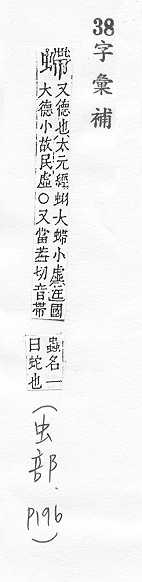 38 字彙補
螮
又德也太元經蝴大螮小虛註國
大德小故民虛○又當蓋切音帶
蟲名一
曰蛇也
(虫部.
P196)